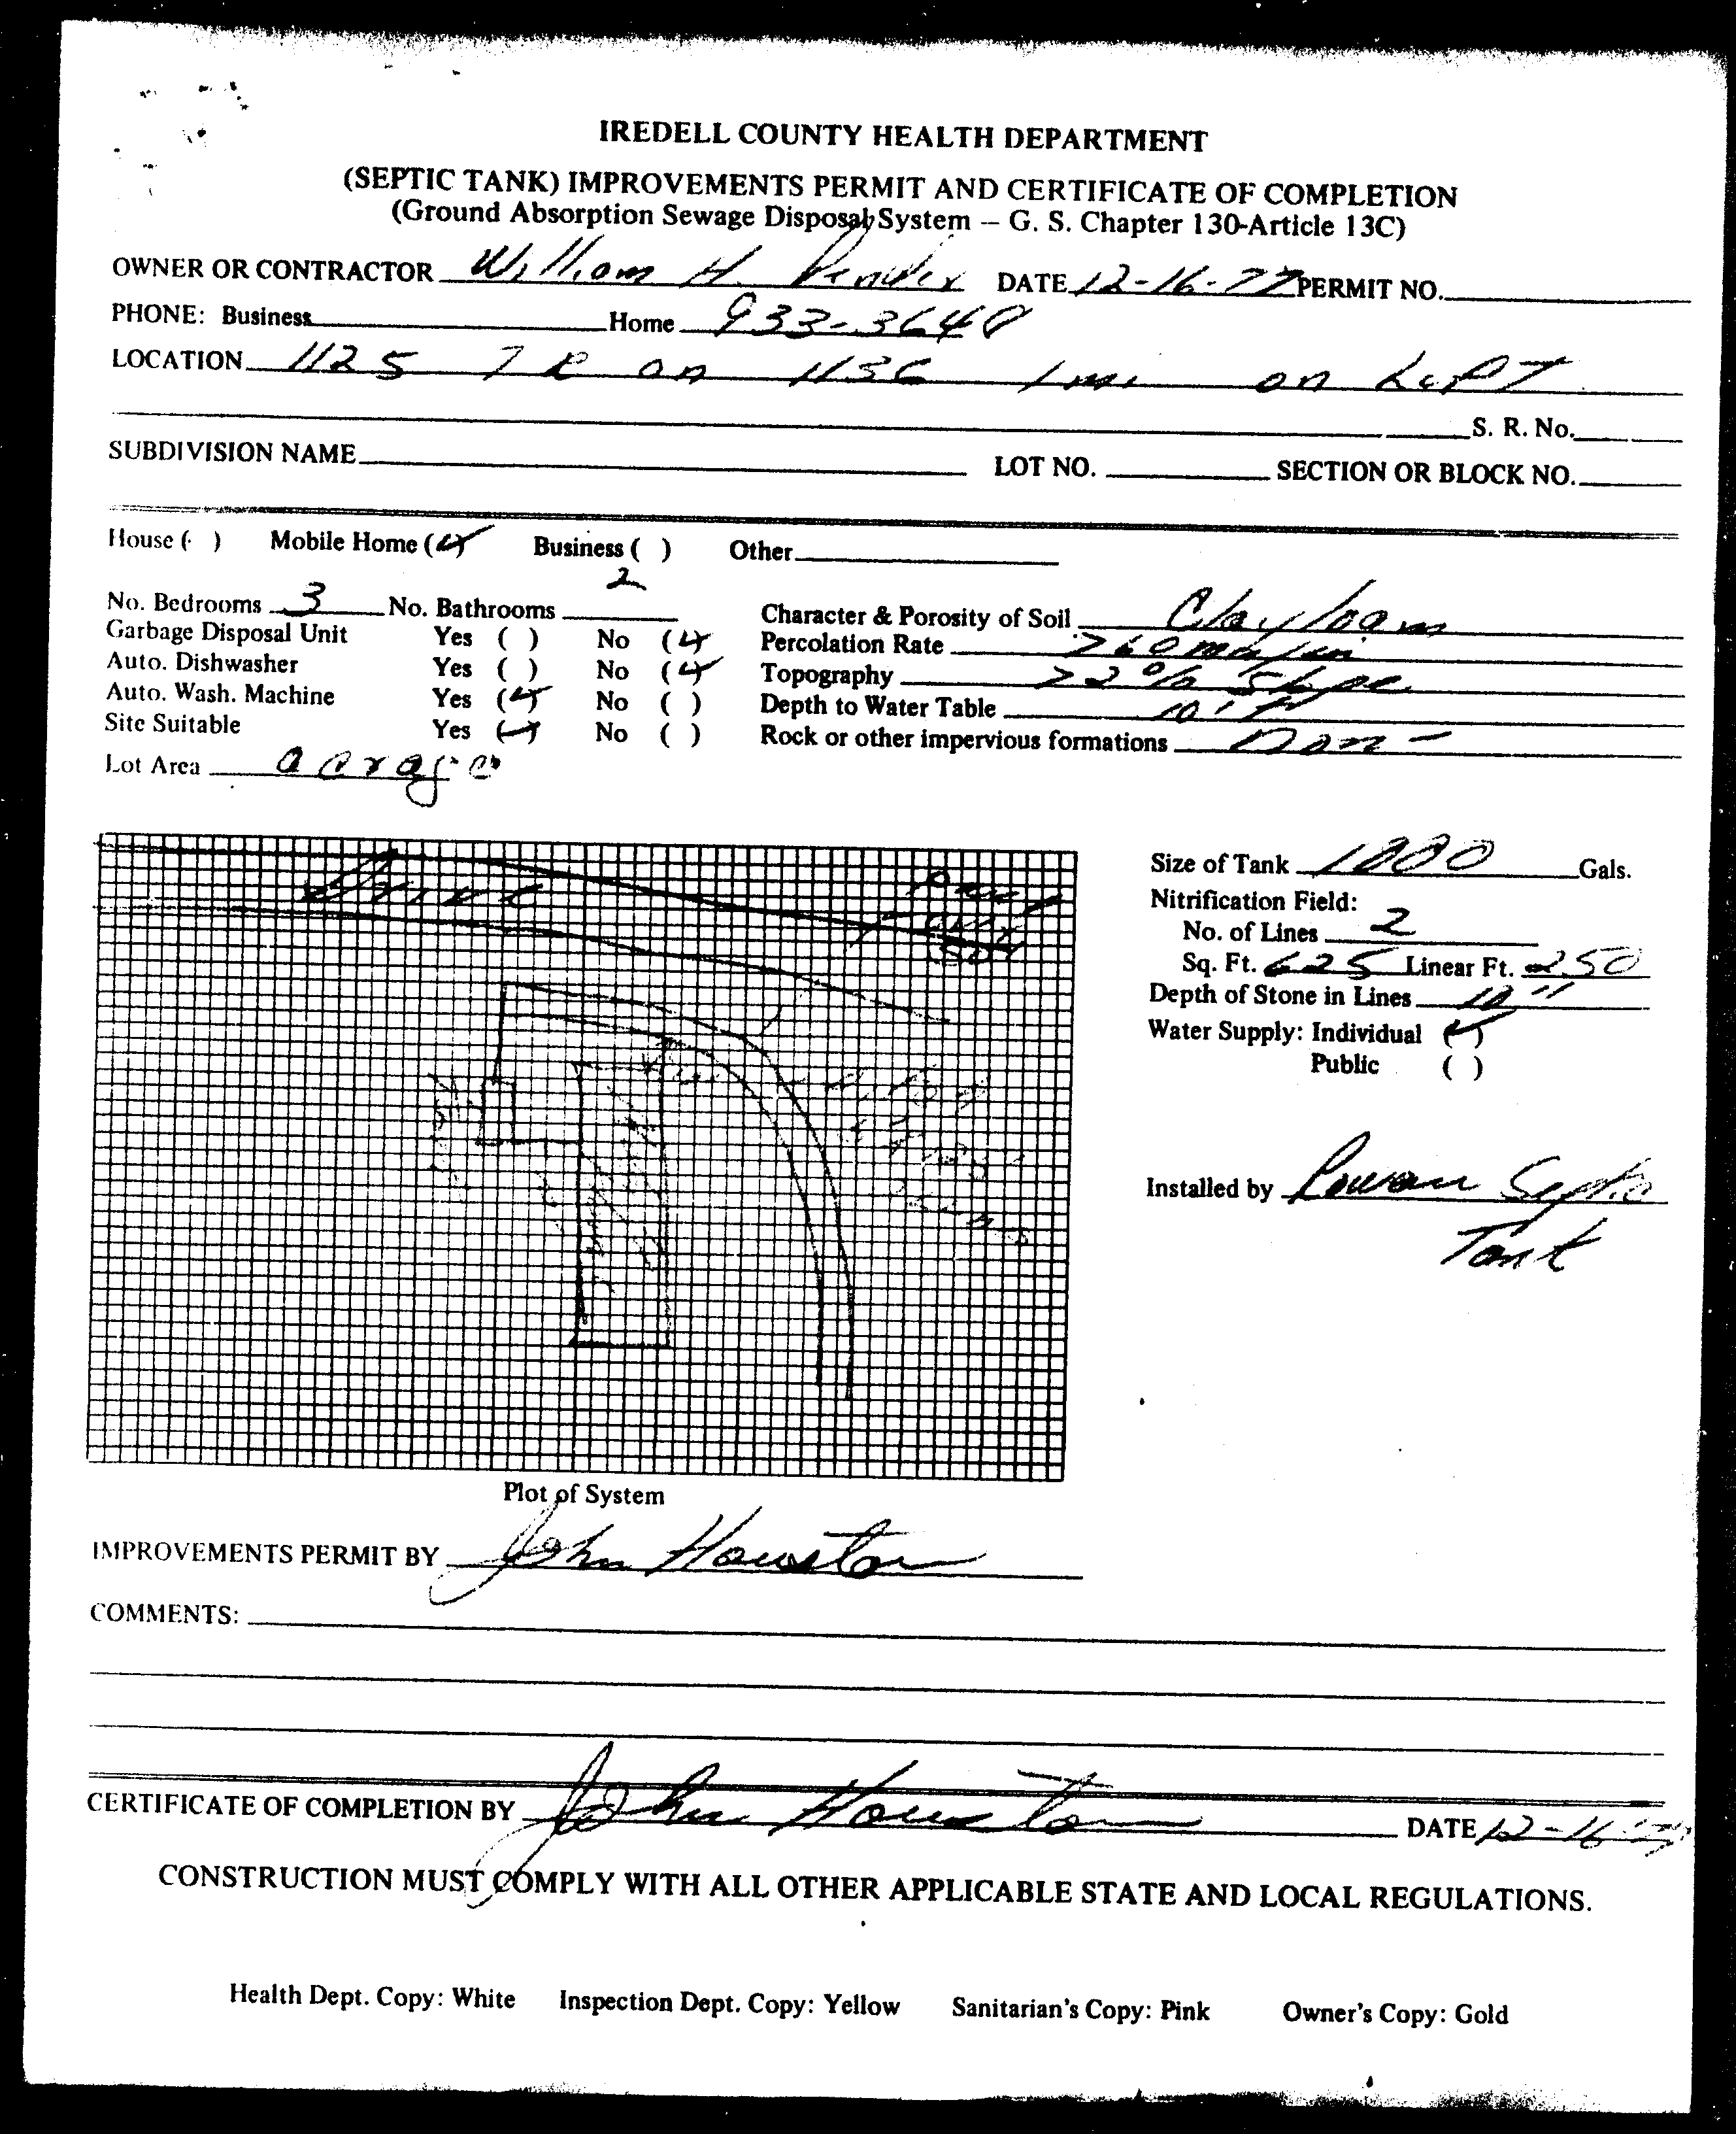 IREDELL COUNTY HEALTH DEPARTMENT
(SEPTIC TANK) IMPROVEMENTS PERMIT AND CERTIFICATE OF COMPLETION
(Ground Absorption Sewage Disposal System – G. S. Chapter 130-Article 13C)
OWNER OR CONTRACTOR William H. DATE 12-16-77 PERMIT NO.
PHONE: Business Home
LOCATION 1125 T R on 1136 1 mi on Left
S. R. No.
SUBDIVISION NAME LOT NO. SECTION OR BLOCK NO.
House ( ) Mobile Home (✓) Business ( ) Other
No. Bedrooms 3 No. Bathrooms 2 Character & Porosity of Soil Clay loam
Garbage Disposal Unit Yes ( ) No (✓) Percolation Rate >60 min/in
Auto. Dishwasher Yes ( ) No (✓) Topography >2% Slope
Auto. Wash. Machine Yes (✓) No ( ) Depth to Water Table 10'
Site Suitable Yes (✓) No ( ) Rock or other impervious formations
Lot Area acrage
Drive
Size of Tank 1000 Gals.
Nitrification Field:
No. of Lines 2
Sq. Ft. 625 Linear Ft. 250
Depth of Stone in Lines
Water Supply: Individual (✓)
Public ( )
Installed by Rowan Septic
Tank
Plot of System
IMPROVEMENTS PERMIT BY John Houston
COMMENTS:
CERTIFICATE OF COMPLETION BY John Houston DATE 12-16-77
CONSTRUCTION MUST COMPLY WITH ALL OTHER APPLICABLE STATE AND LOCAL REGULATIONS.
Health Dept. Copy: White Inspection Dept. Copy: Yellow Sanitarian's Copy: Pink Owner's Copy: Gold